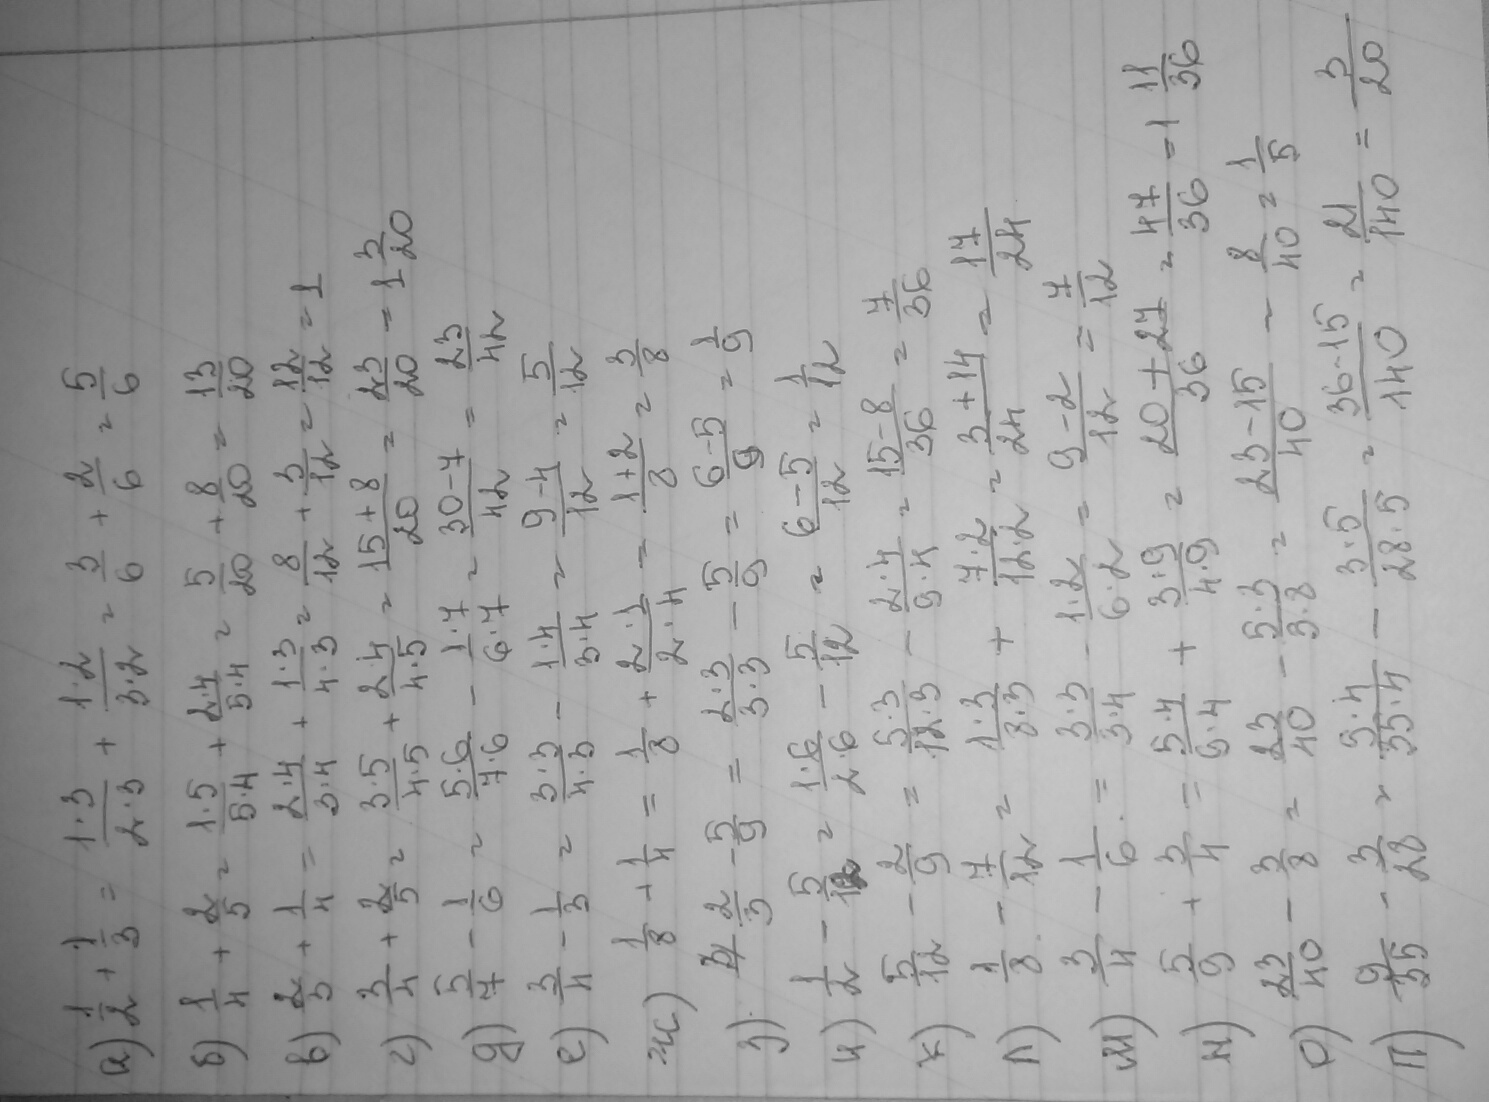 а) 1/2 + 1/3 = 1·3/2·3 + 1·2/3·2 = 3/6 + 2/6 = 5/6
б) 1/4 + 2/5 = 1·5/5·4 + 2·4/5·4 = 5/20 + 8/20 = 13/20
в) 2/3 + 1/4 = 2·4/3·4 + 1·3/4·3 = 8/12 + 3/12 = 12/12 = 1
г) 3/4 + 2/5 = 3·5/4·5 + 2·4/4·5 = 15+8/20 = 23/20 = 1 3/20
д) 5/7 - 1/6 = 5·6/7·6 - 1·7/6·7 = 30-7/42 = 23/42
е) 3/4 - 1/3 = 3·3/4·3 - 1·4/3·4 = 9-4/12 = 5/12
ж) 1/8 + 1/4 = 1/8 + 2·1/2·4 = 1+2/8 = 3/8
з) 2/3 - 5/9 = 2·3/3·3 - 5/9 = 6-5/9 = 1/9
и) 1/2 - 5/12 = 1·6/2·6 - 5/12 = 6-5/12 = 1/12
к) 5/12 - 2/9 = 5·3/12·3 - 2·4/9·4 = 15-8/36 = 7/36
л) 1/8 - 7/12 = 1·3/8·3 + 7·2/12·2 = 3+14/24 = 17/24
м) 3/4 - 1/6 = 3·3/3·4 - 1·2/6·2 = 9-2/12 = 7/12
н) 5/9 + 3/4 = 5·4/9·4 + 3·9/4·9 = 20+27/36 = 47/36 = 1 11/36
о) 23/40 - 3/8 = 23/40 - 5·3/3·8 = 23-15/40 - 8/40 = 1/5
п) 9/35 - 3/28 = 9·4/35·4 - 3·5/28·5 = 36-15/140 = 21/140 = 3/20